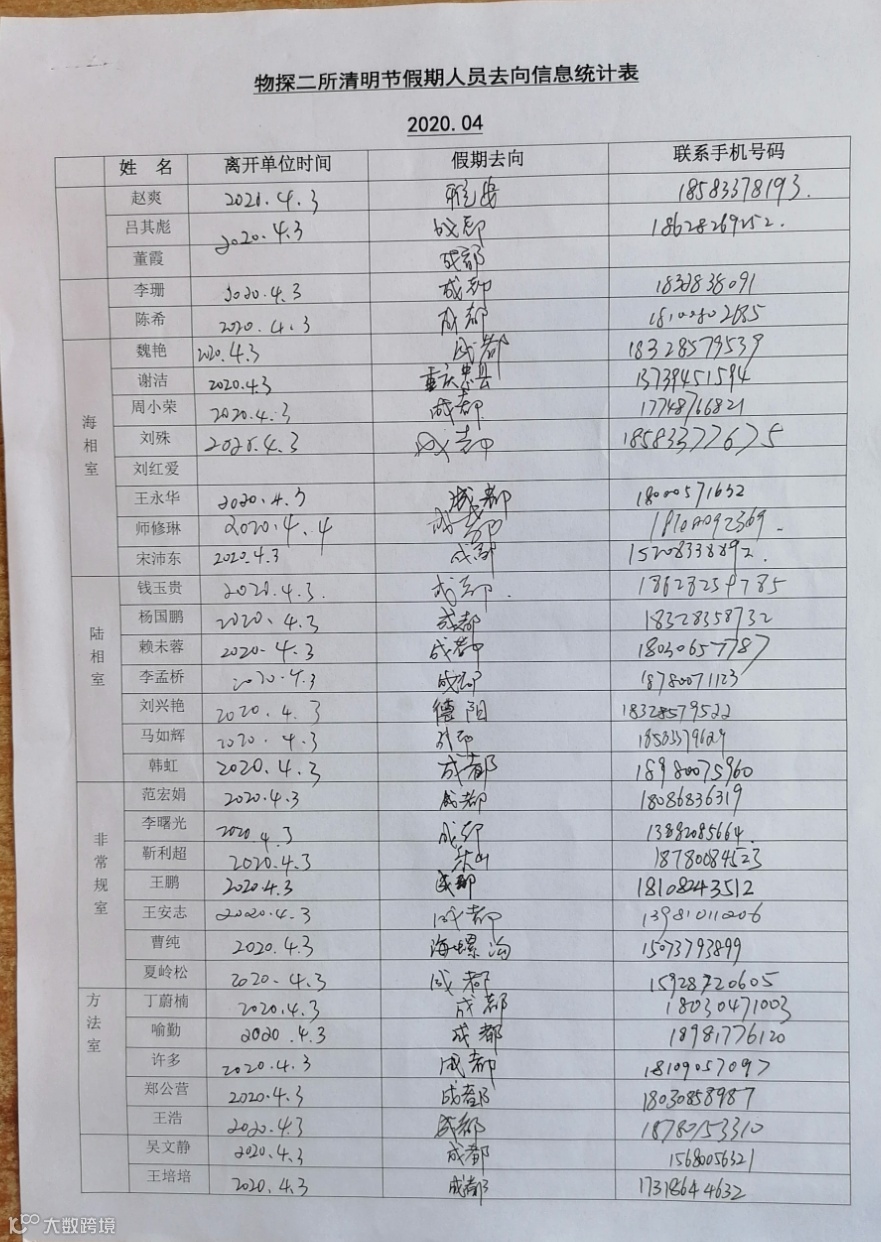 物探二所清明节假期人员去向信息统计表
2020.04
姓 名 离开单位时间 假期去向 联系手机号码
赵爽 2020.4.3 雅安 18583378193.
吕其彪 2020.4.3 成都 18628269252.
董霞 成都
李珊 2020.4.3 成都
陈希 2020.4.3 成都
海相室
魏艳 2020.4.3 成都 18328579539
谢洁 2020.4.3 重庆忠县 13739451594
周小荣 2020.4.3 成都 17748766821
刘殊 2020.4.3 成都 18583377675
刘红爱
王永华 2020.4.3 成都 18000571632
师修琳 2020.4.4 成都
宋沛东 2020.4.3 成都 15208338892.
陆相室
钱玉贵 2020.4.3. 成都. 18628254785
杨国鹏 2020.4.3 成都 18328358732
赖未蓉 2020.4.3 成都 18030657787
李孟桥 2020.4.3 成都 18780071123
刘兴艳 2020.4.3 德阳 18328579522
马如辉 2020.4.3
韩虹 2020.4.3 成都 18980075960
非常规室
范宏娟 2020.4.3 成都 18086836319
李曙光 2020.4.3 成都 13882085664.
靳利超 2020.4.3 乐山 18780084523
王鹏 2020.4.3 成都 18108243512
王安志 2020.4.3 成都 13981011206
曹纯 2020.4.3 海螺沟 15073793899
夏岭松 2020.4.3 成都 15928720605
方法室
丁蔚楠 2020.4.3 成都 18030471003
喻勤 2020.4.3 成都 18981776120
许多 2020.4.3 成都 18109057097
郑公营 2020.4.3 成都 18030858987
王浩 2020.4.3 成都 18780153310
吴文静 2020.4.3 成都 15680056321
王培培 2020.4.3 成都 17318644632
大数跨境